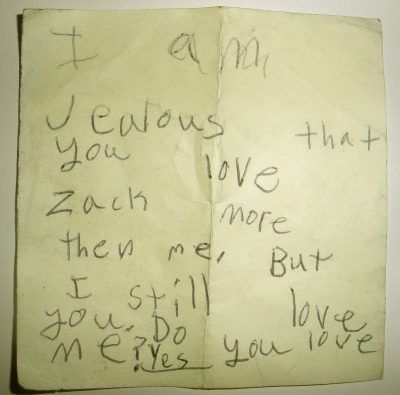 I am,
Jealous that
you love
Zack more
then me. But
I still love
you. Do you love
me? Yes